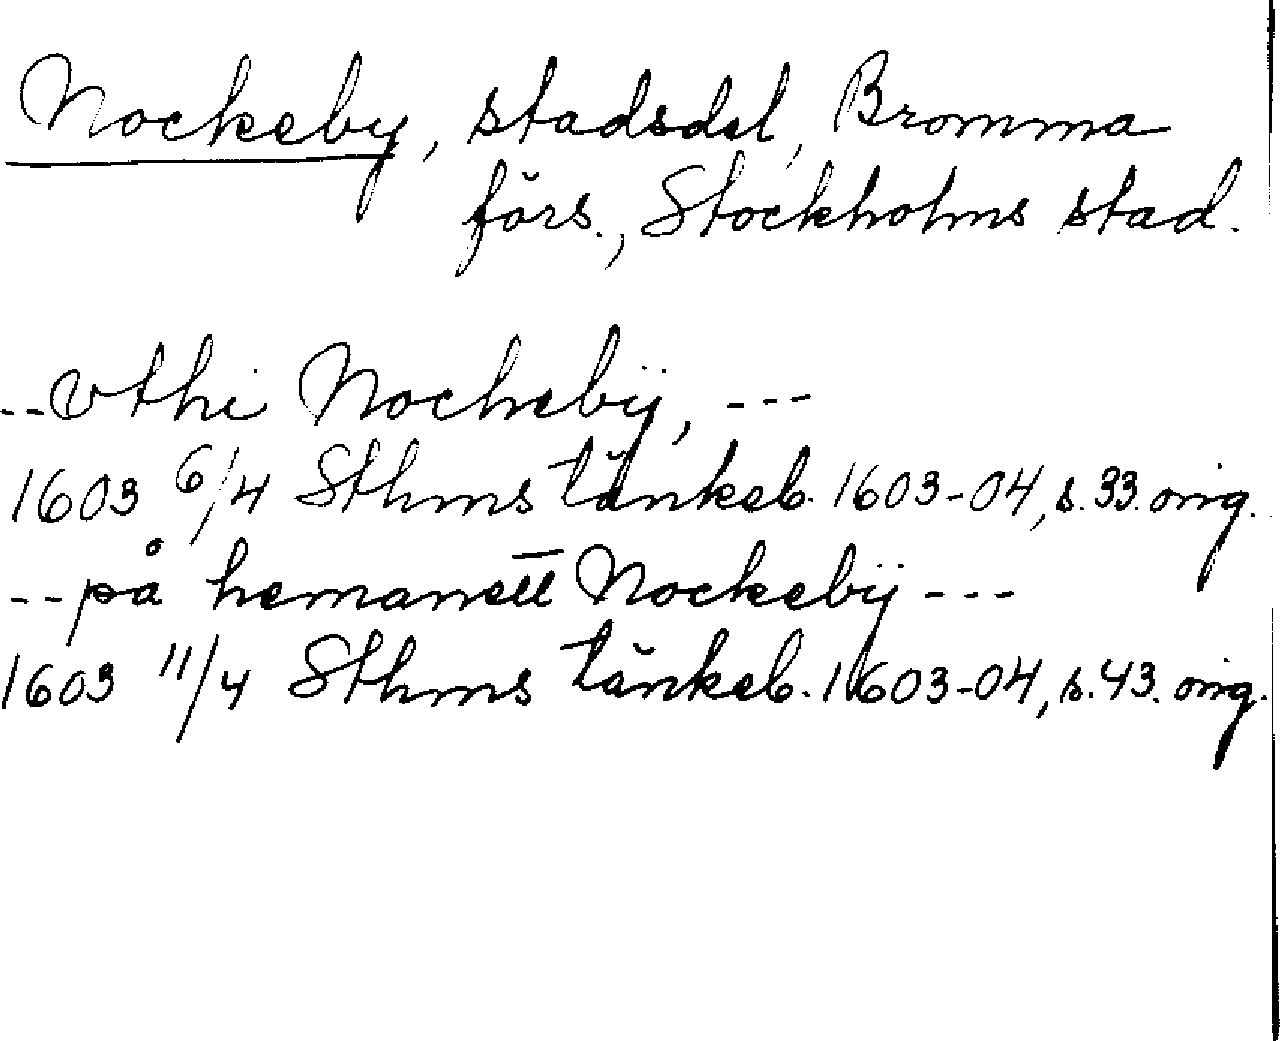 Nockeby, stadsdel, Bromma
förs., Stockholms stad.
--vthi Nockebÿ, ---
1603 6/4 Sthms tänkeb. 1603-04, s. 33. orig.
--på hemanett Nockebÿ ---
1603 11/4 Sthms tänkeb. 1603-04, s. 43. orig.